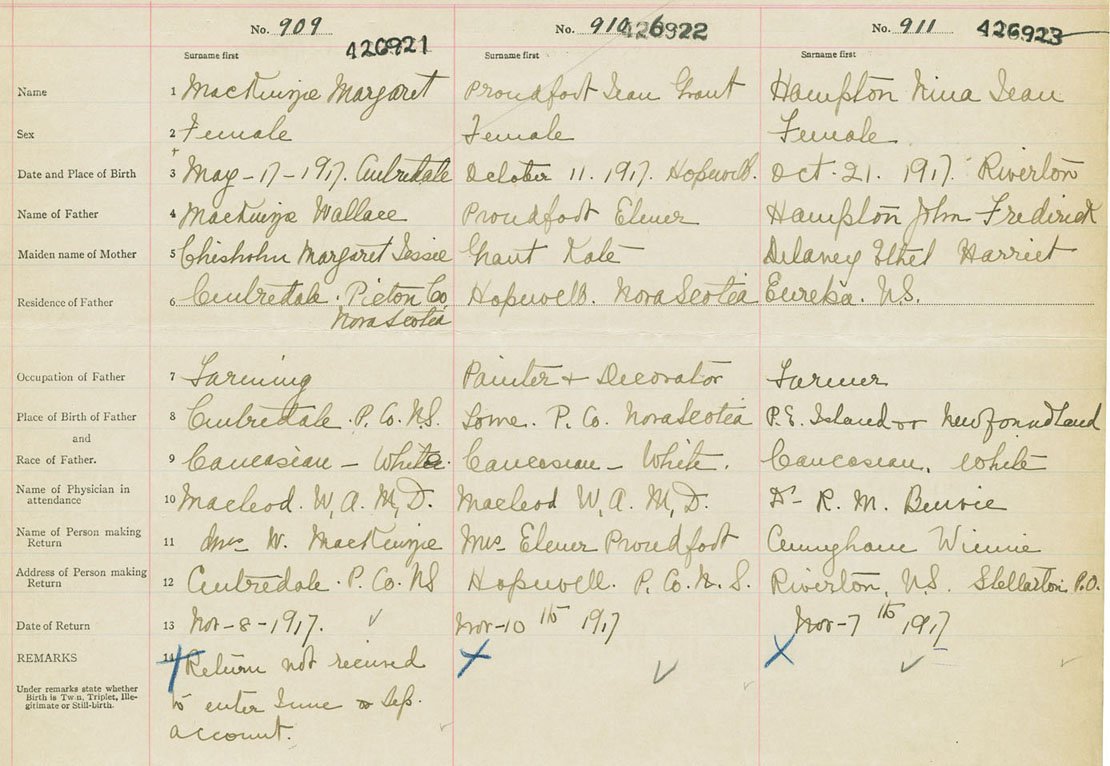 No. 909 No. 910 No. 911
426921 426922 426923
Surname first Surname first Surname first
Name 1 MacKenzie Margaret Proudfoot Jean Grant Hampton Nina Jean
Sex 2 Female Female Female
Date and Place of Birth 3 May-17-1917. Centredale October 11. 1917. Hopewell. Oct. 21. 1917. Riverton
Name of Father 4 MacKenzie Wallace Proudfoot Elmer Hampton John Frederick
Maiden name of Mother 5 Chisholm Margaret Jessie Grant Kate Delaney Ethel Harriet
Residence of Father 6 Centredale. Pictou Co. Hopewell. Nova Scotia Eureka. N.S.
Nova Scotia
Occupation of Father 7 Farming Painter + Decorator Farmer
Place of Birth of Father 8 Centredale. P. Co. N.S. Lorne. P. Co. Nova Scotia P.E. Island or Newfoundland
and
Race of Father. 9 Caucasian - White. Caucasian - White. Caucasian. White
Name of Physician in
attendance 10 Macleod. W. A. M. D. Macleod W. A. M. D. Dr R. M. Benvie
Name of Person making
Return 11 Mrs W. MacKenzie Mrs Elmer Proudfoot Winnie
Address of Person making
Return 12 Centredale. P. Co. NS Hopewell. P. Co. N. S. Riverton, N.S. Stellarton P.O.
Date of Return 13 Nov-8-1917. Nov-10th 1917 Nov-7th 1917
REMARKS 14 Return not received
Under remarks state whether
Birth is Twin, Triplet, Ille-
gitimate or Still-birth.
to enter June or Sep.
account.